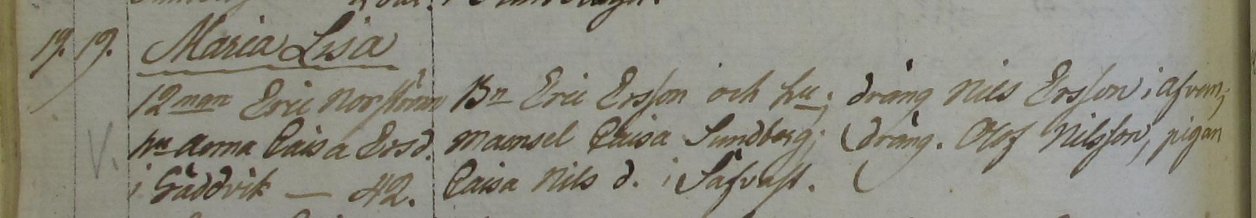 19. 19. Maria Lisa
12 man Eric Norström Bn Eric Ersson och hu; dräng Nils Ersson i Afvan;
hu Anna Caisa Ersd. Mamsel Caisa Sundberg; dräng. Olof Nilsson, pigan
i Gäddvik — 42. Caisa Nils d. i Säfvast.